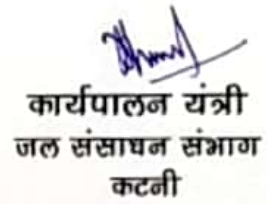 कार्यपालन यंत्री
जल संसाधन संभाग
कटनी